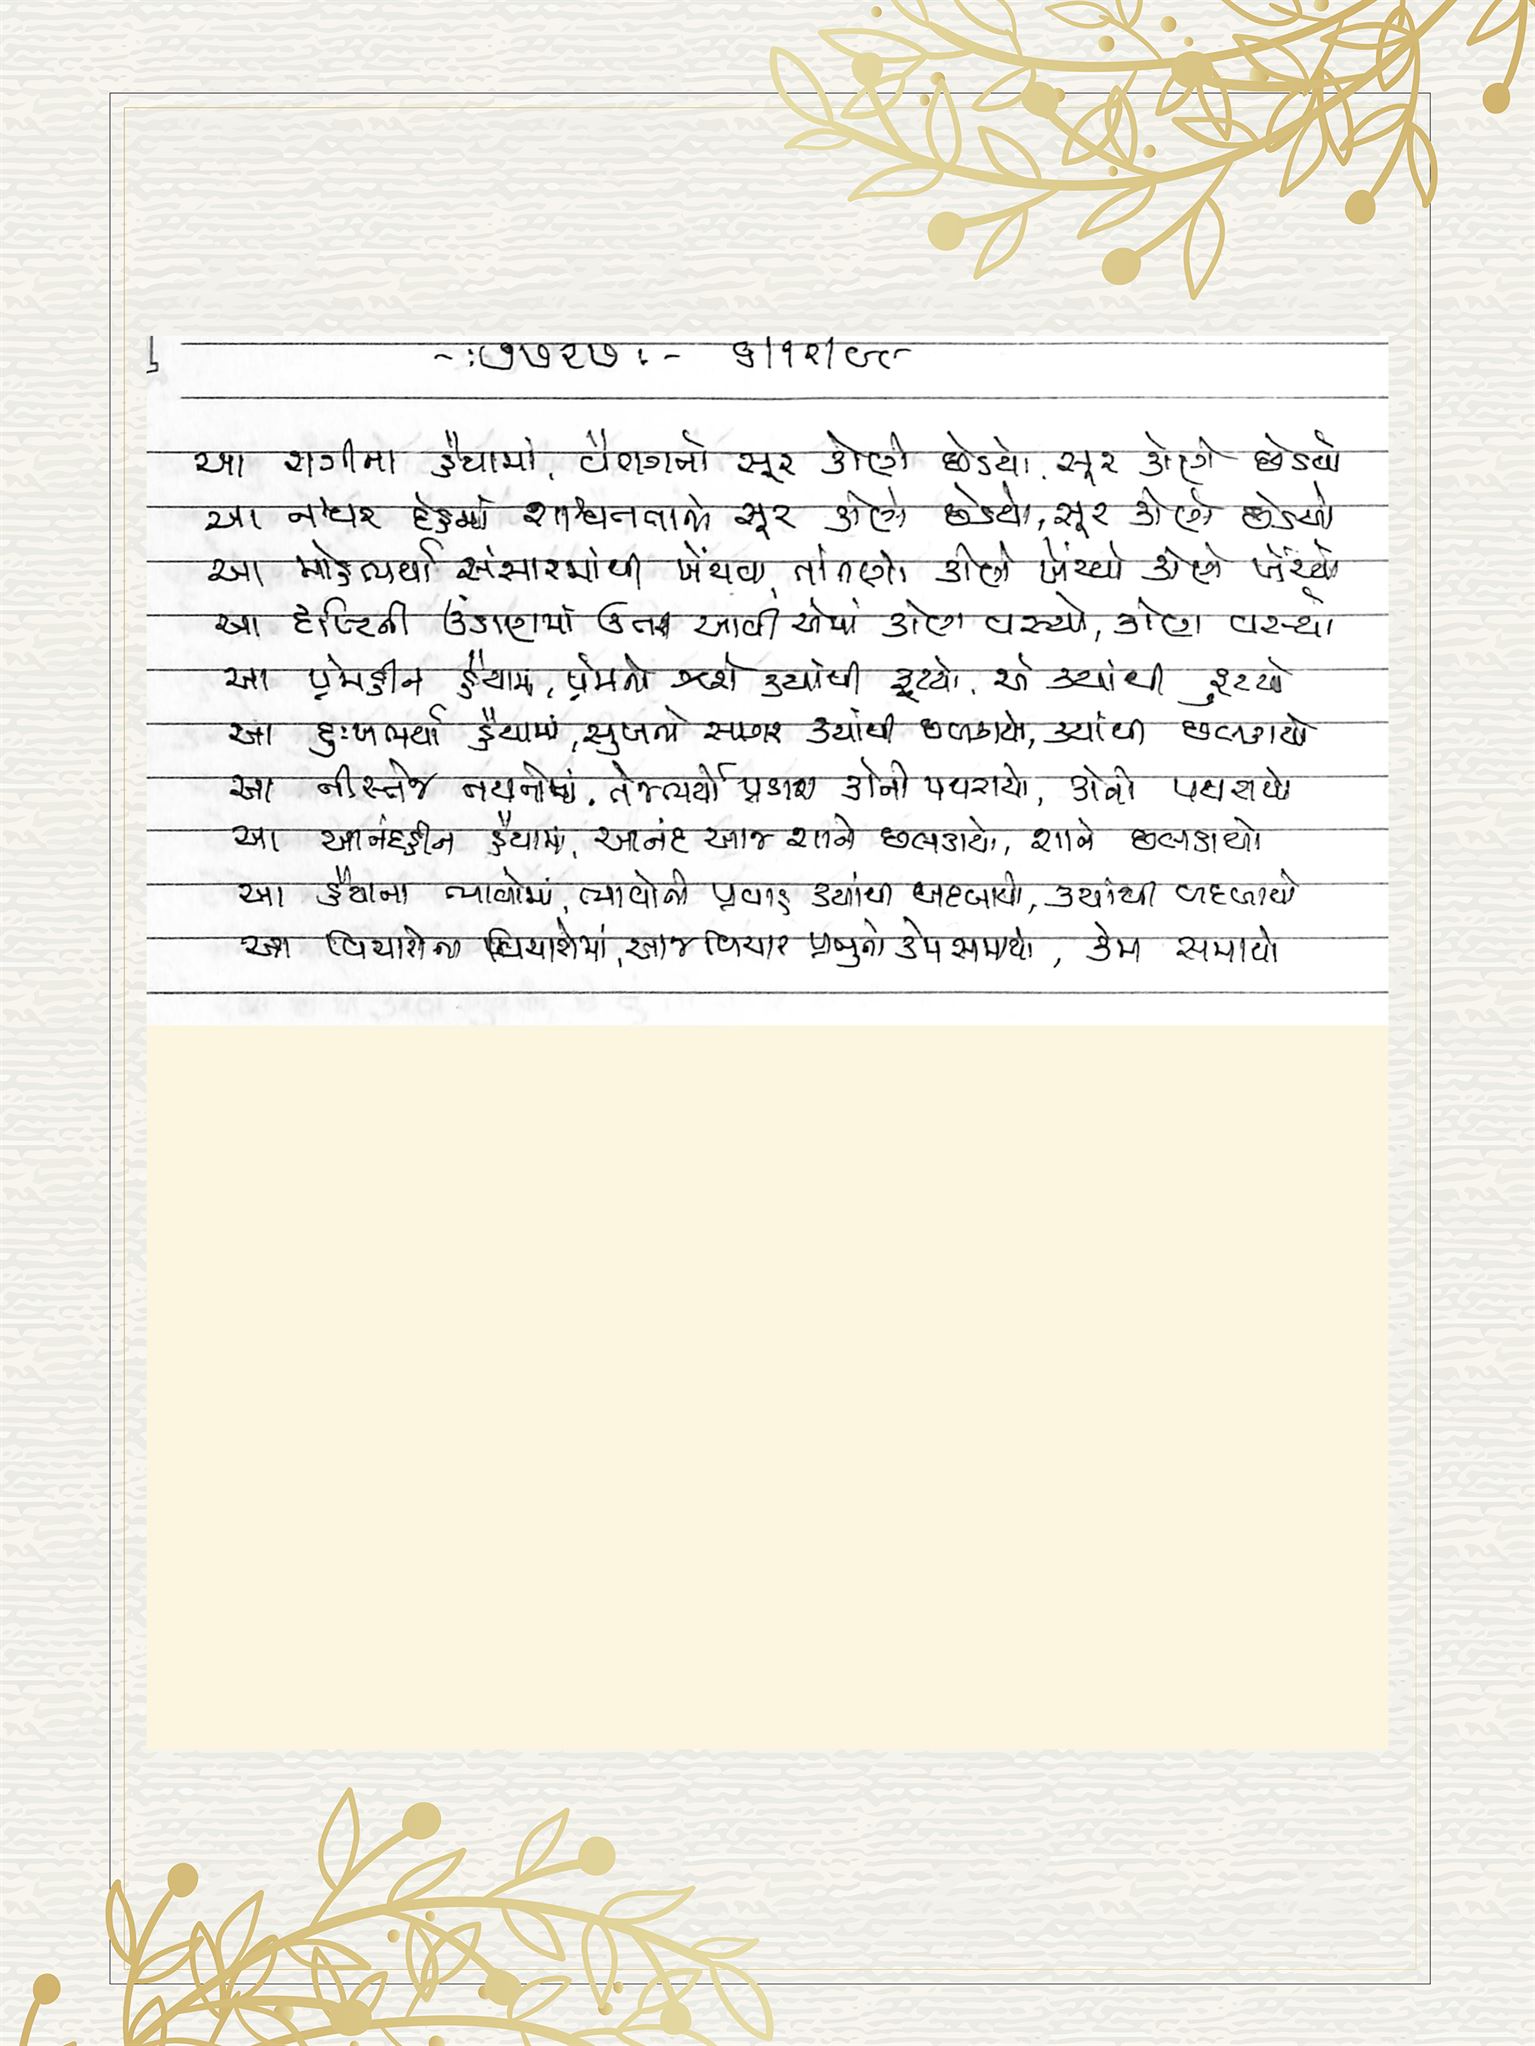 -: ૭૭૨૭ :- ૬/૧૨/૯૮
આ રાગીના હૈયામાં, વૈરાગનો સૂર કોણે છેડયો, સૂર કોણે છેડયો
આ નશ્વર દેહમાં શાશ્વનતાનો સૂર કોણે છેડયો, સૂર કોણે છેડયો
આ મોહભર્યા સંસારમાંથી ખેંચવા તાંતણો કોણે ખેંચ્યો કોણે ખેંચ્યો
આ દૃષ્ટિની ઉંડાણમાં ઉતરી આવી એમાં કોણ વસ્યો, કોણ વસ્યો
આ પ્રેમહીન હૈયામાં, પ્રેમનો ઝરો ક્યાંથી ફૂટયો, એ ક્યાંથી ફુટયો
આ દુઃખભર્યા હૈયામાં, સુખનો સાગર ક્યાંથી છલકાયો, ક્યાંથી છલકાયો
આ નીસ્તેજ નયનોમાં, તેજભર્યો પ્રકાશ કોનો પથરાયો, કોનો પથરાયો
આ આનંદહીન હૈયામાં, આનંદ આજ શાને છલકાયો, શાને છલકાયો
આ હૈયાના ભાવોમાં, ભાવોનો પ્રવાહ ક્યાંથી બદલાયો, ક્યાંથી બદલાયો
આ વિચારોના વિચારોમાં, આજ વિચાર પ્રભુનો કેમ સમાયો, કેમ સમાયો